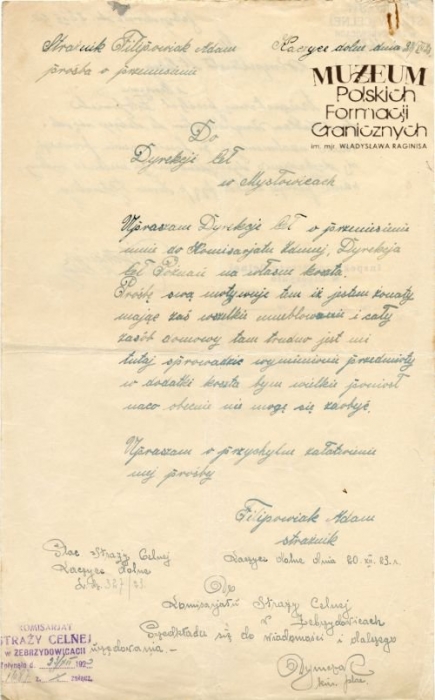 Strażnik Filipowiak Adam
prośba o przeniesienie
Kaczyce dolne dnia
MUZEUM
Polskich
Formacji
Granicznych
im. mjr. WŁADYSŁAWA RAGINISA
Do
Dyrekcji Ceł
w Mysłowicach
Upraszam Dyrekcję Ceł o przeniesienie
mnie do Komisarjatu Zduny, Dyrekcja
Ceł Poznań na własne koszta.
Prośbę swą motywuję tem iż jestem żonaty
mając zaś wszelkie umeblowanie i cały
zasób domowy tam trudno jest mi
tutaj sprowadzić wymienione przedmioty
w dodatki koszta bym wielkie poniosł
naco obecnie nie mogę się zdobyć.
Upraszam o przychylne załatwienie
mej prośby
Filipowiak Adam
strażnik
Plac. Straży Celnej
Kaczyce dolne
L.dz. 327/23.
Kaczyce dolne dnia 20.XII.23.r.
Do
Komisarjatu Straży Celnej
w Zebrzydowicach
Przedkłada się do wiadomości i dalszego
urzędowania –
KOMISARJAT
STRAŻY CELNEJ
w ZEBRZYDOWICACH
Wpłynęło d.
załącz.